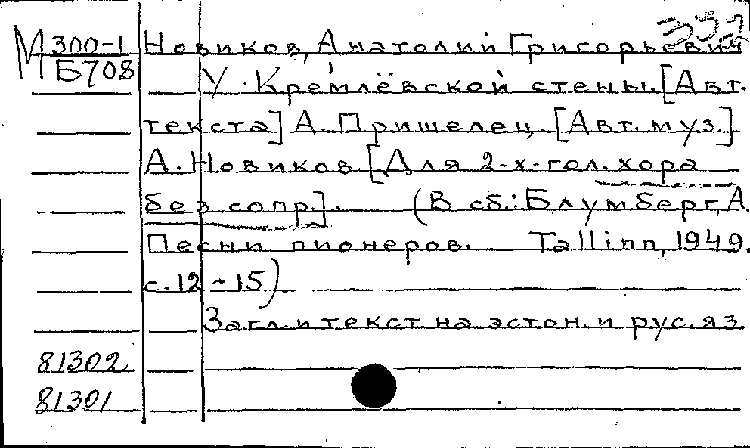 332
М 300-1 Новиков, Анатолий Григорьевич
Б708 У Кремлёвской стены. [Авт.
текста] А. Пришелец. [Авт. муз.]
А. Новиков [Для 2-х-гол. хора
без сопр.]. (В сб.: Блумберг, А.
Песни пионеров. Tallinn, 1949.
с. 12-15)
Загл. и текст на эстон. и рус. яз.
81302
81301